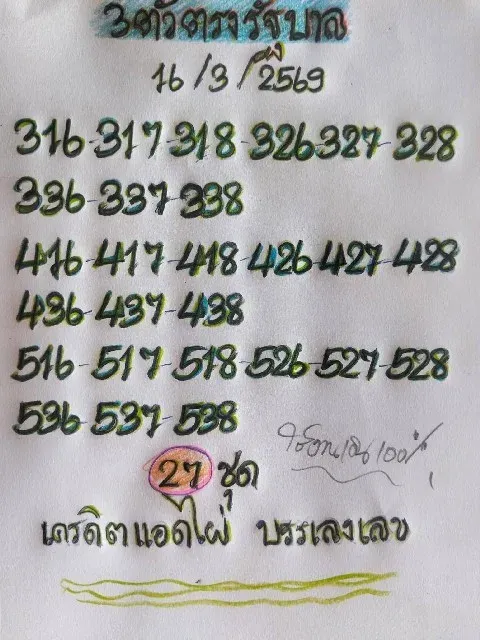 3ตัวตรงรัฐบาล
16/3/2569
316-317-318-326-327-328
336-337-338
416-417-418-426-427-428
436-437-438
516-517-518-526-527-528
536-537-538
27 ชุด
เครดิตแอดไผ่ บรรเลงเลข